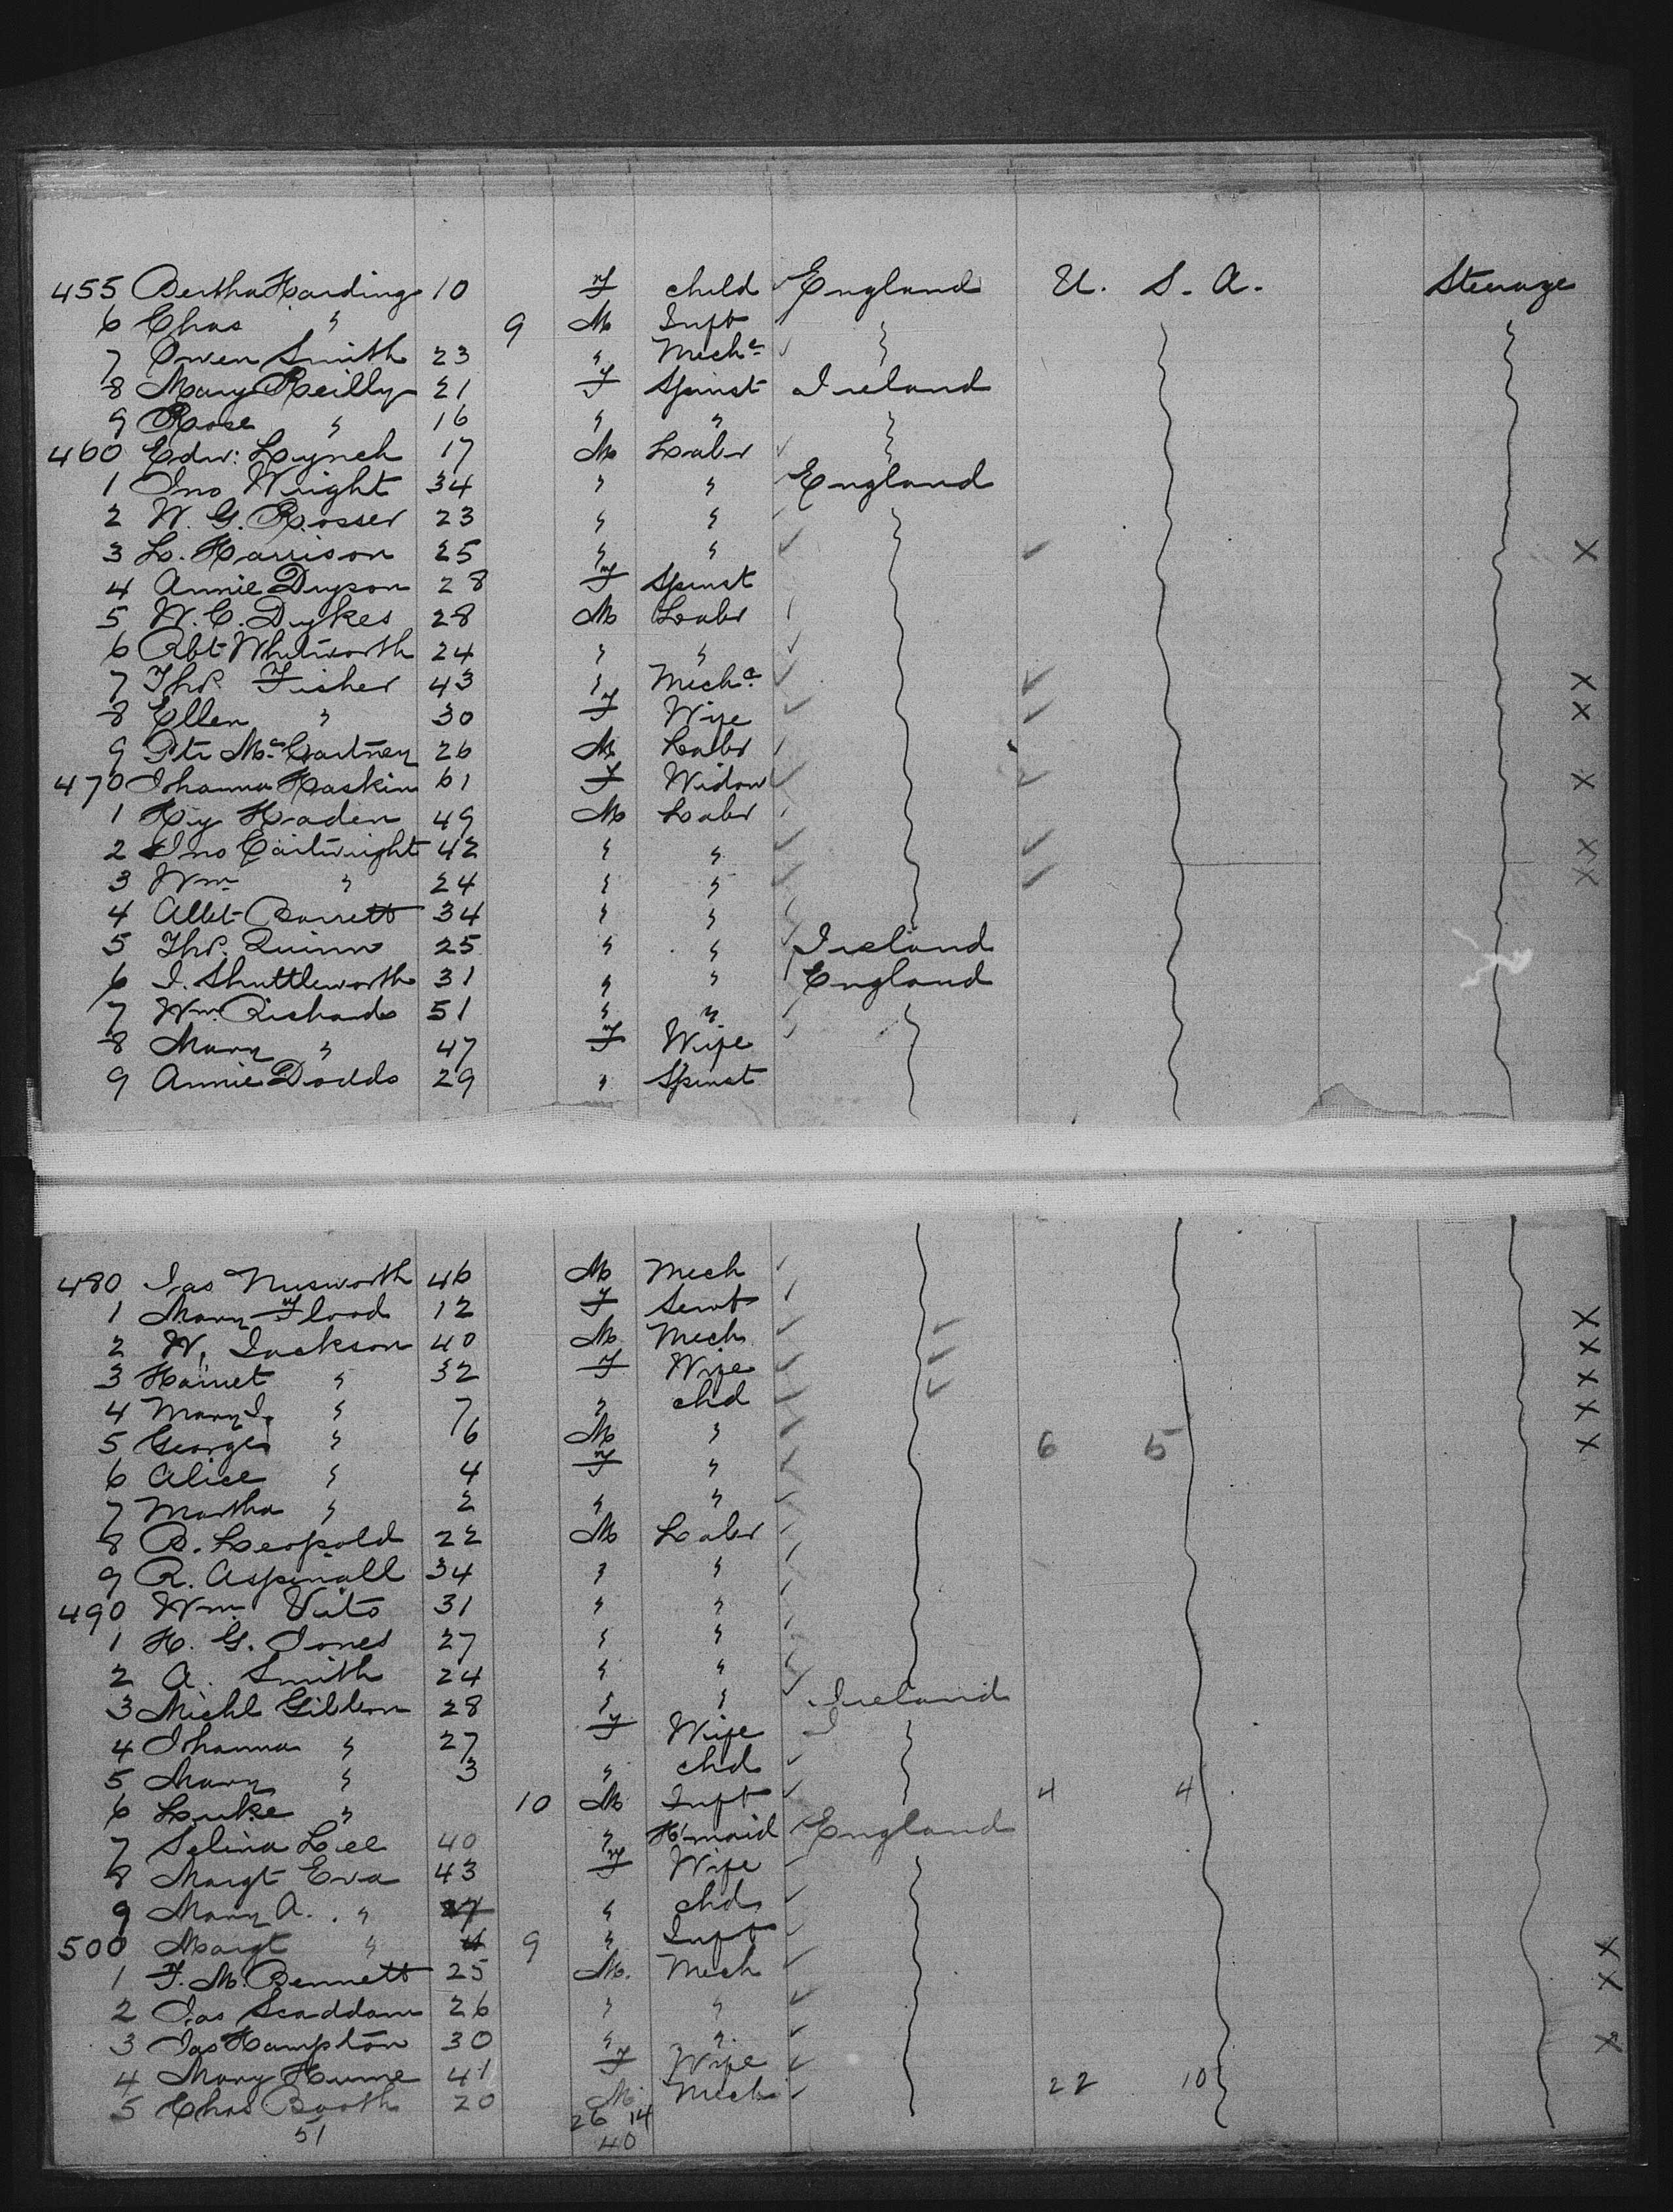 455 Bertha Harding 10 F child England U. S. A. Steerage
6 Chas " 9 M Inft "
7 Owen Smith 23 " Mech^c "
8 Mary Reilly 21 F Spinst Ireland
9 Rose " 16 " " "
460 Edw: Lynch 17 M Labr "
1 Jno Wright 34 " " England
2 W. G. Rosser 23 " "
3 L. Harrison 25 " " X
4 Annie Dyson 28 F Spinst
5 W. C. Dykes 28 M Labr
6 Rbt Whitworth 24 " "
7 Thos. Fisher 43 " Mech^c X
8 Ellen " 30 F Wife X
9 Ptr McCartney 26 M Labr
470 Johanna Haskin 61 F Widow X
1 Hy Haden 49 M Labr
2 Jno Cartwright 42 " " X
3 Wm " 24 " " X
4 Allet Barrett 34 " "
5 Thos. Quinn 25 " " Ireland
6 J. Shuttleworth 31 " " England
7 Wm. Richards 51 " "
8 Mary " 47 F Wife
9 Annie Dodds 29 " Spinst
480 Jas 46 M Mech
1 Mary Flood 12 F Servt X
2 W. Jackson 40 M Mech X
3 Harriet " 32 F Wife X
4 Mary J. " 7 " chd X
5 George " 6 M " 6 5 X
6 Alice " 4 F "
7 Martha " 2 " "
8 B. Leopold 22 M Labr
9 R. Aspinall 34 " "
490 Wm. 31 " "
1 H. G. Jones 27 " "
2 A. Smith 24 " "
3 Michl Gibbon 28 " " Ireland
4 Johanna " 27 F Wife "
5 Mary " 3 " chd
6 Luke " 10 M Inft 4 4
7 Selina Lee 40 " H'maid England
8 Margt Eva 43 F Wife
9 Mary A. " " chd
500 Margt " 9 " Inft X
1 F. M. Bennett 25 M. Mech X
2 Jas Scaddam 26 " "
3 Jas Hampton 30 " " X
4 Mary Hume 41 F Wife 22 10
5 Chas Booth 20 M Mech
51 26 14
40